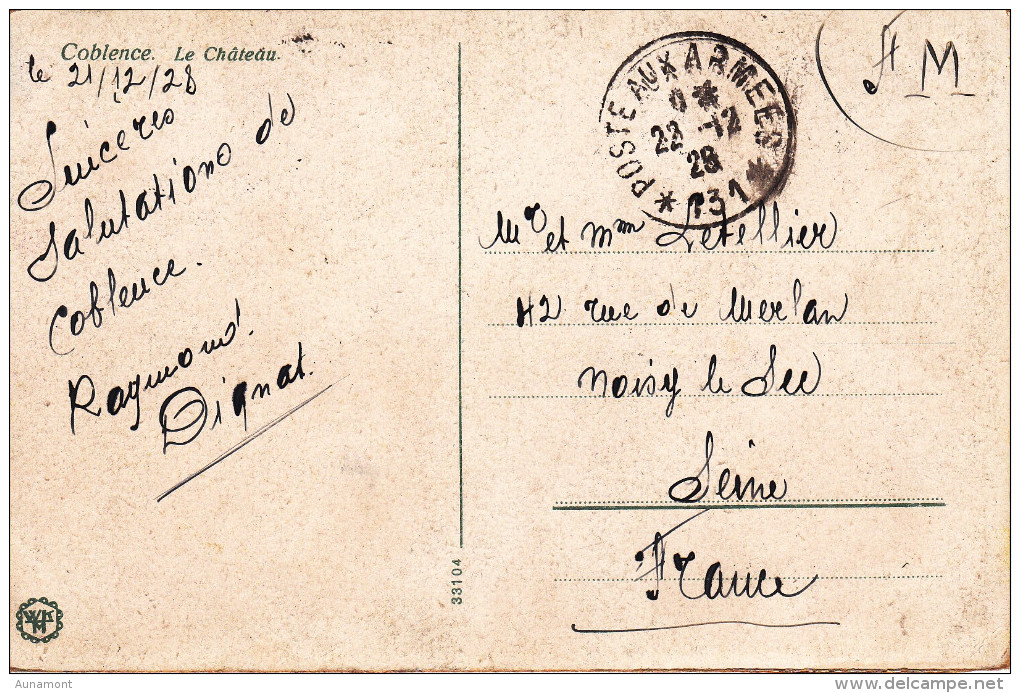 Coblence. Le Château.
le 21/12/28
Sincères
Salutations de
Coblence.
Raymond.
Dignat.
F M
* POSTE AUX ARMEES *
22 -12
28
131
Mr et mm Letellier
42 rue du Merlan
Noisy le Sec
Seine
France
33104
Aunamont
delcampe.net